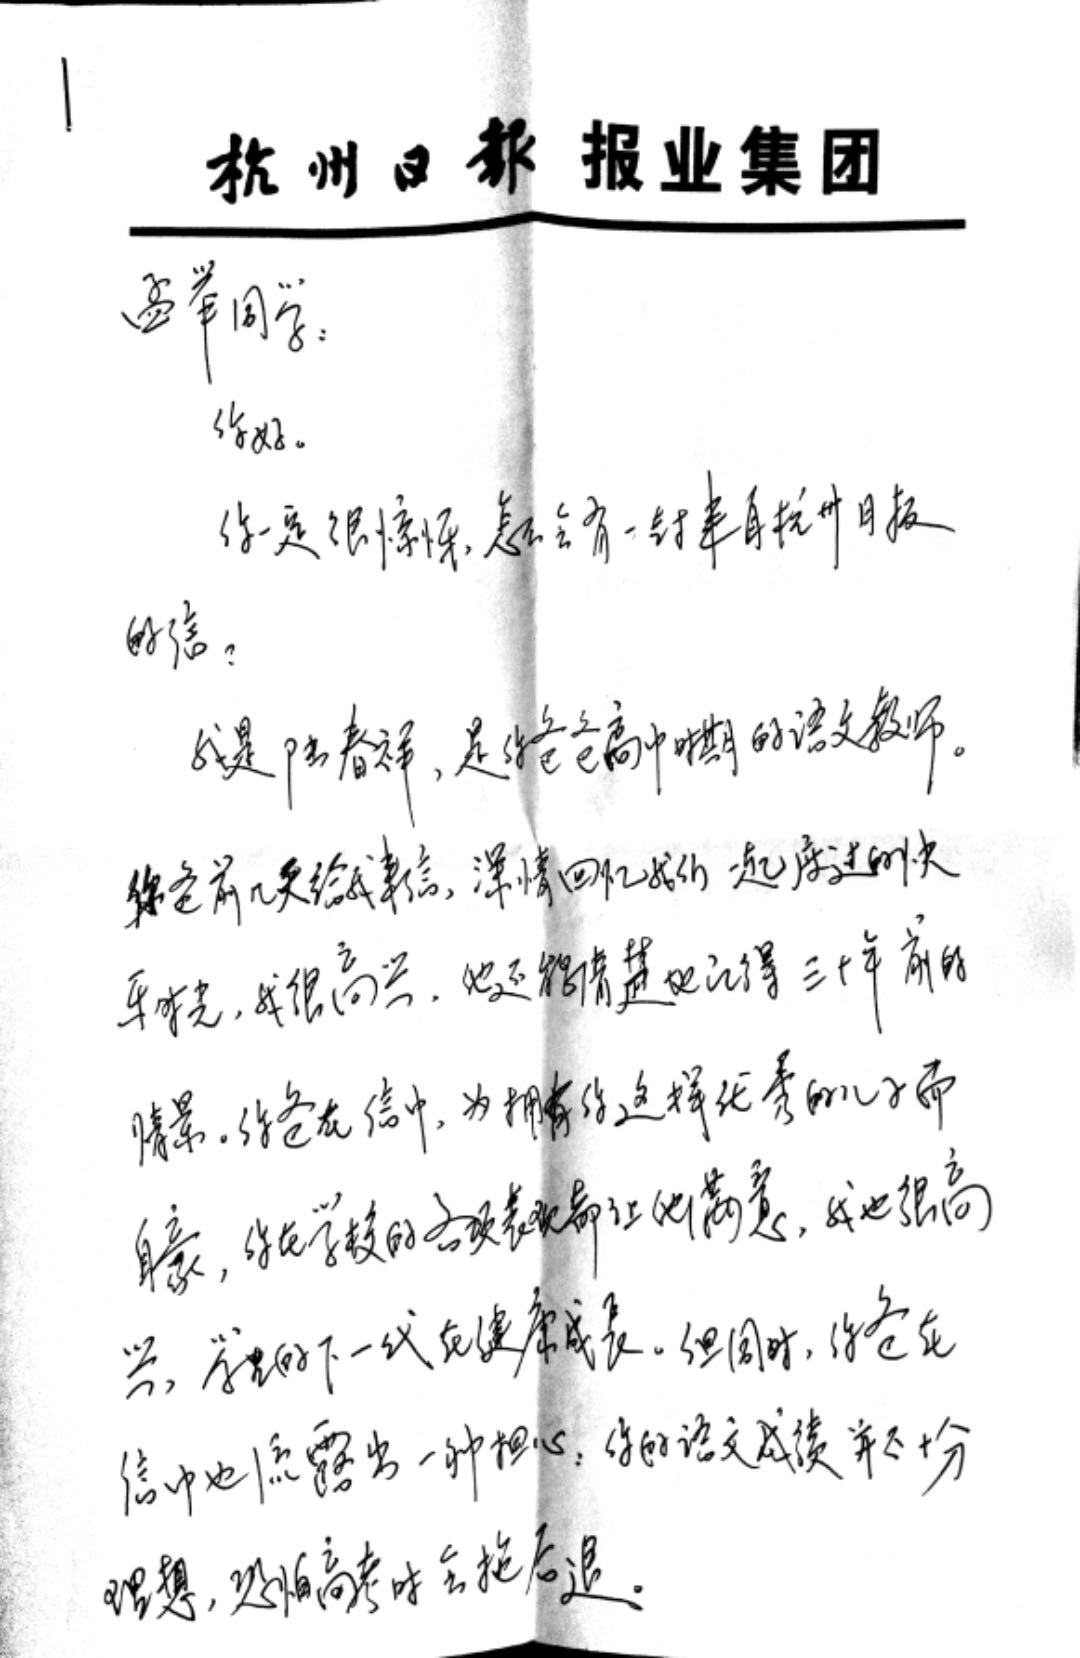 杭州日报 报业集团
孟举同学：
你好。
你一定很惊讶，怎么会有一封来自杭州日报
的信？
我是陆春祥，是你爸爸高中时期的语文教师。
你爸前几天给我来信，深情回忆我们一起度过的快
乐时光，我很高兴，他还能清楚地记得三十年前的
情景。你爸在信中，为拥有你这样优秀的儿子而
自豪，你在学校的各项表现都让他满意，我也很高
兴，学生的下一代在健康成长。但同时，你爸在
信中也流露出一种担心：你的语文成绩并不十分
理想，恐怕高考时会拖后退。